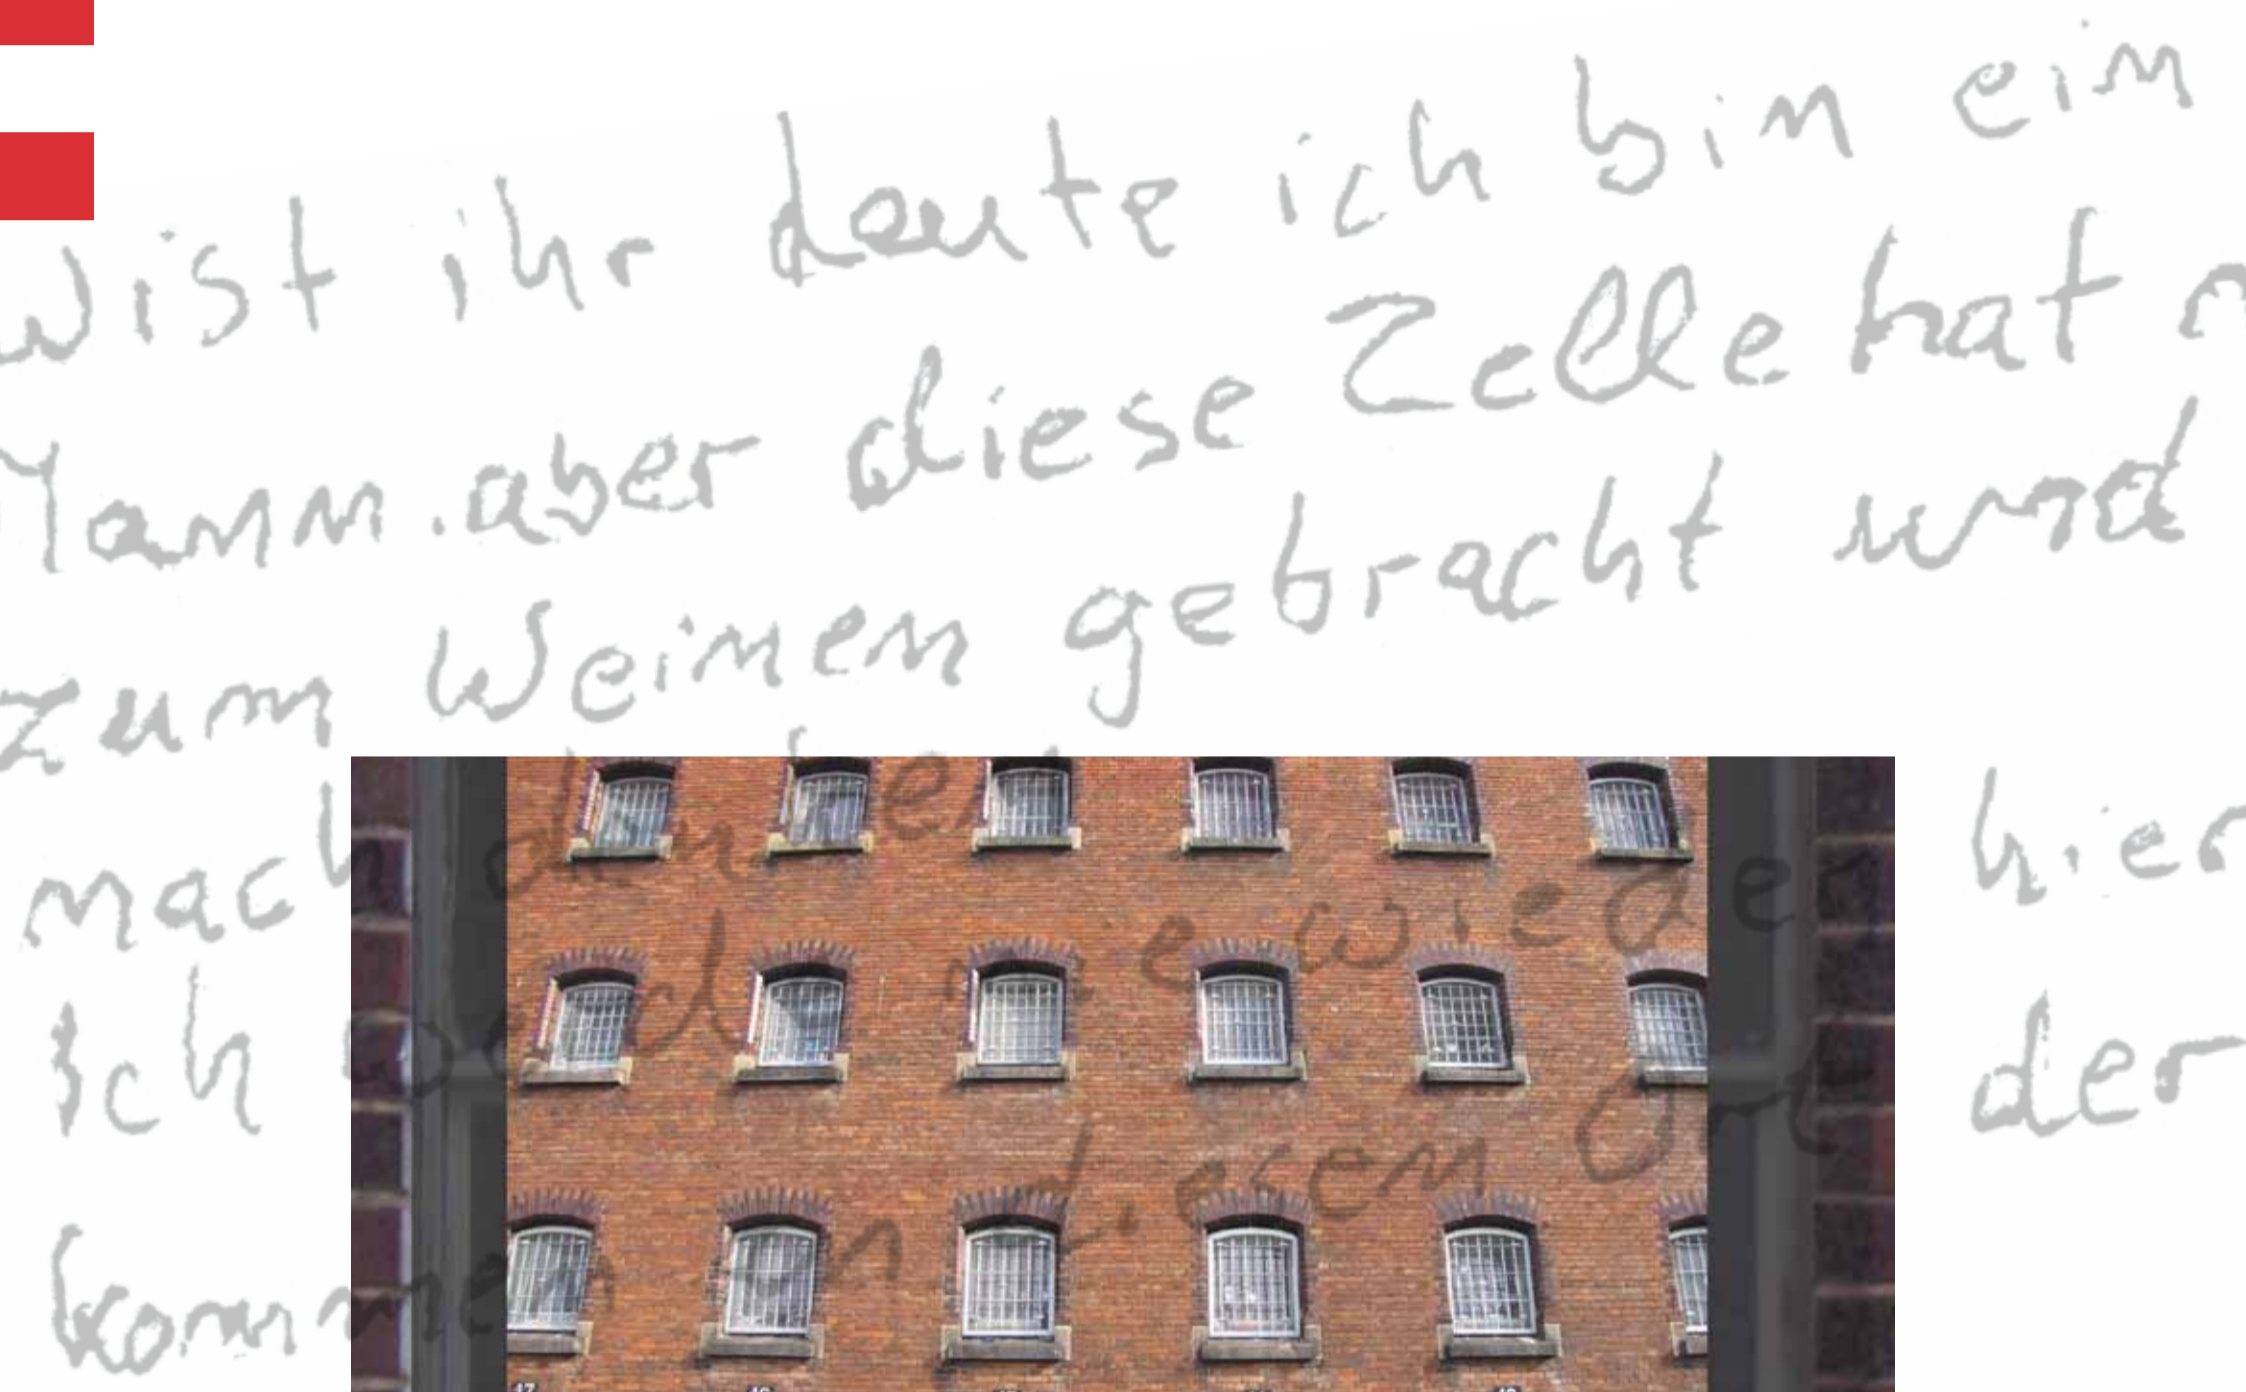 Wist ihr Leute ich bin ein
Mann. aber diese Zelle hat
zum Weinen gebracht und
nach denken hier
Ich werd nie wieder der
kommen an diesem Ort